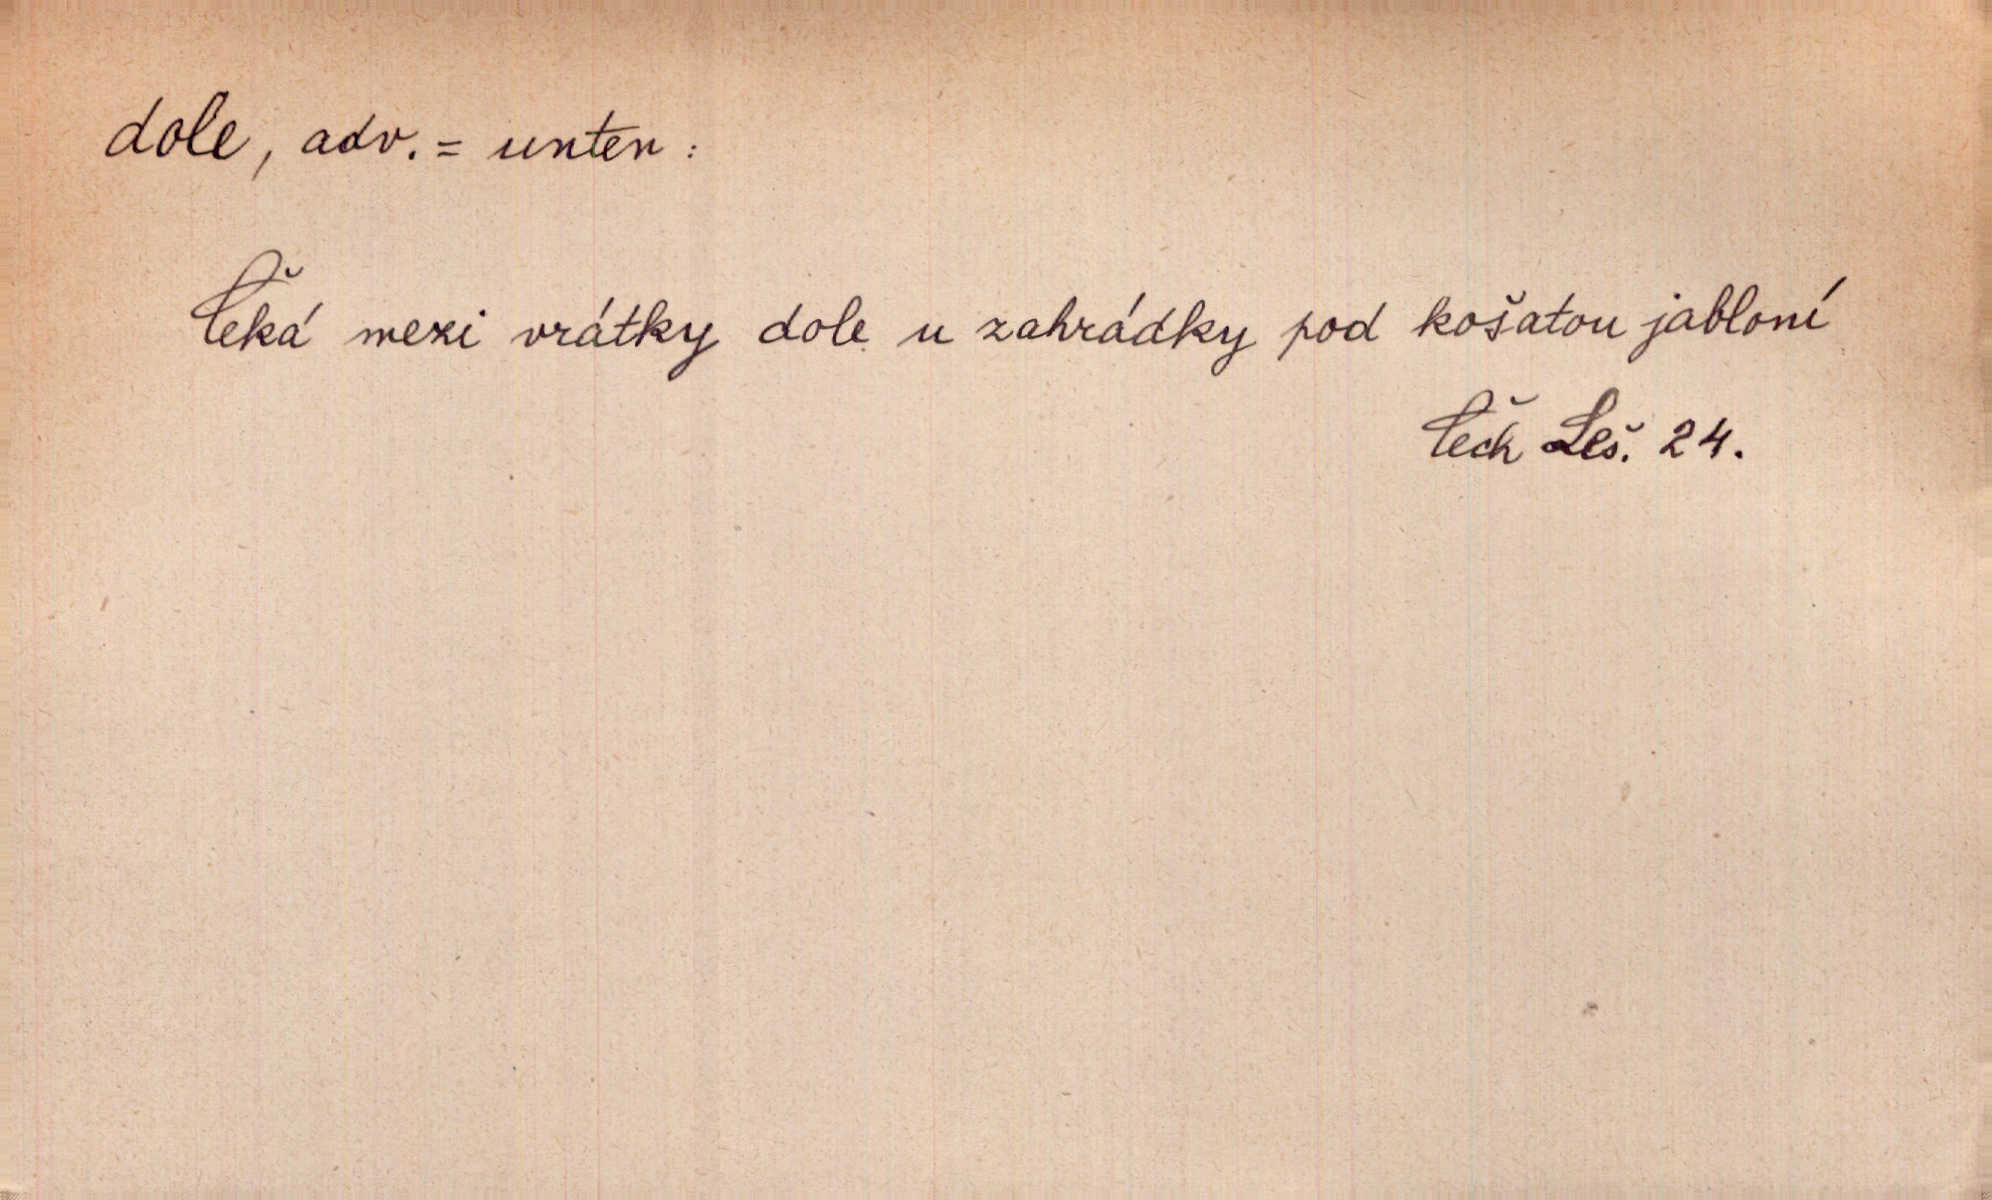 dole, adv. = unten :
Čeká mezi vrátky dole u zahrádky pod košatou jabloní
Čech Leš. 24.